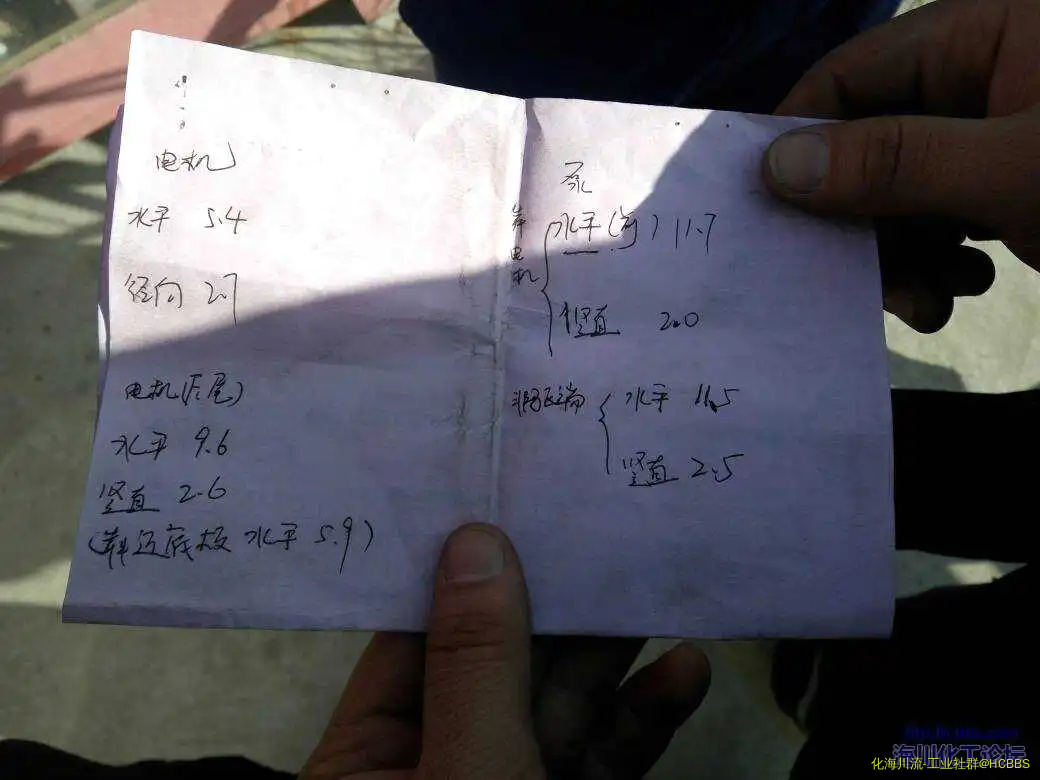 电机
水平 5.4
径向 2.7
电机(后尾)
水平 9.6
竖直 2.6
(靠近底板 水平 5.9)
泵
靠电机
水平 ( ) 11.7
竖直 2.0
非驱动端
水平 11.5
竖直 2.5
海川化工论坛
化海川流-工业社群@HCBBS